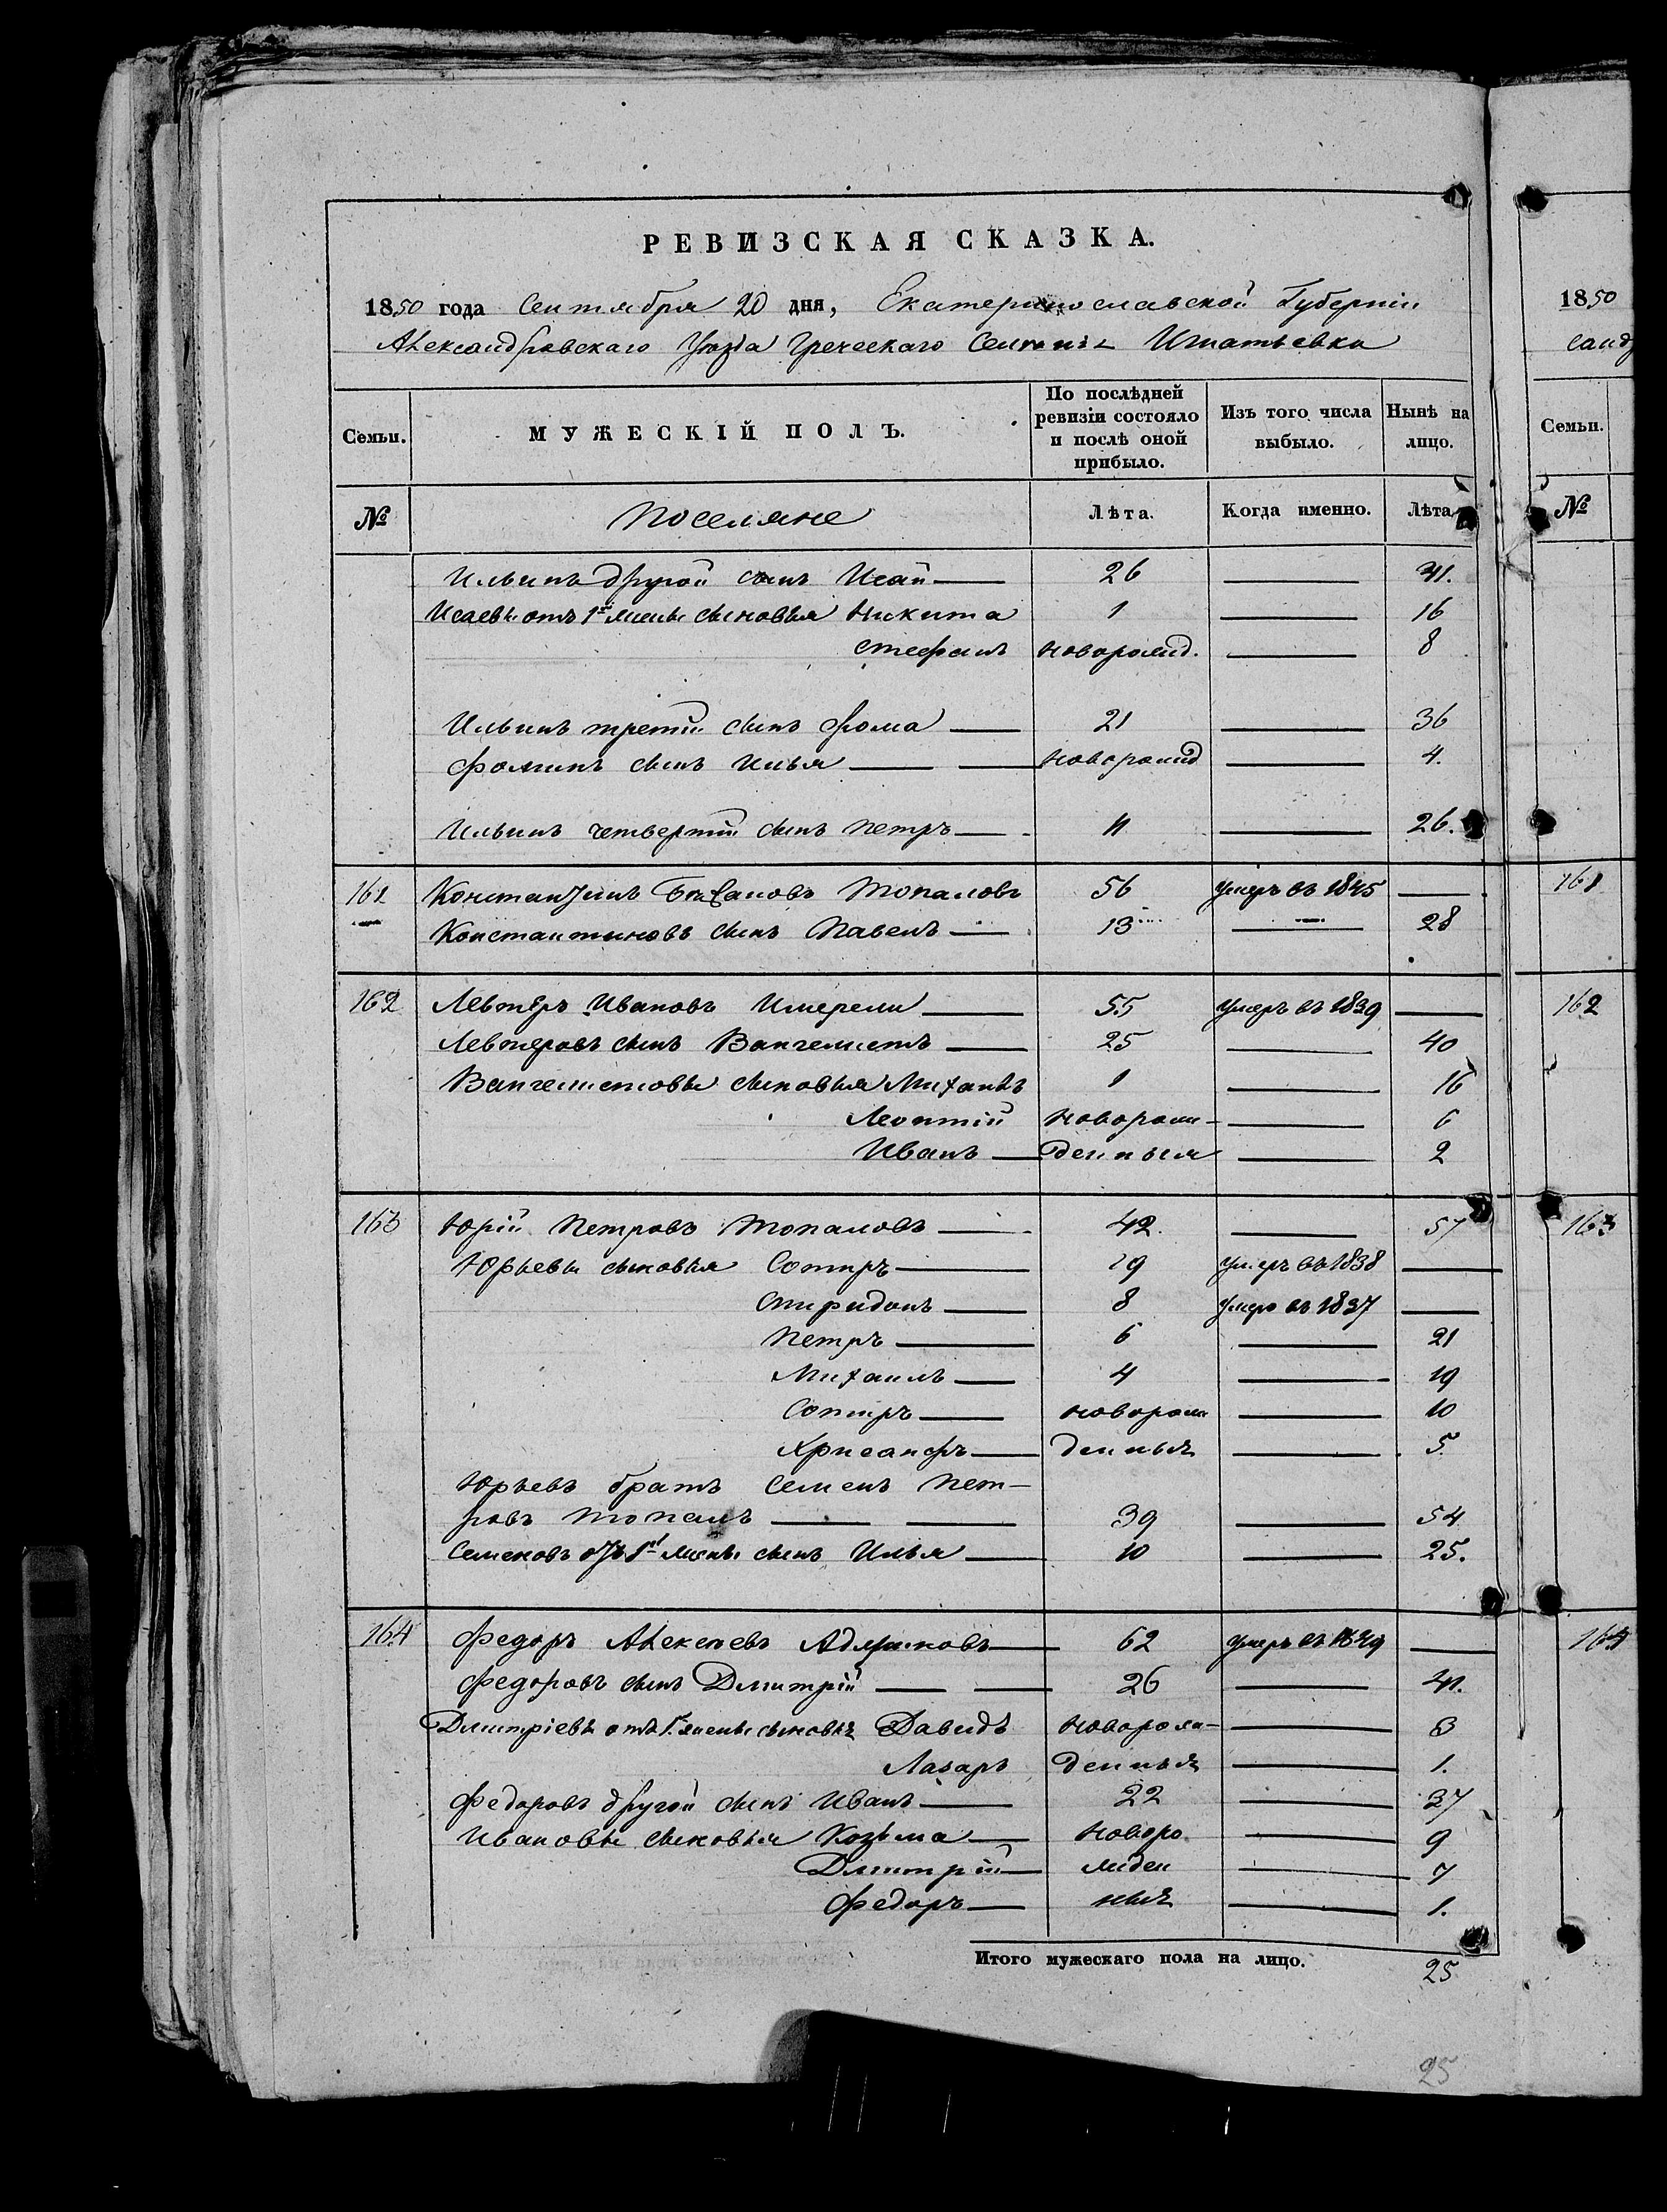 РЕВИЗСКАЯ СКАЗКА.
1850 года Сентября 20 дня, Екатеринославской Губерніи
Александровскаго Уѣзда Греческаго Селенія Игнатьевка
Семьи. МУЖЕСКІЙ ПОЛЪ. По послѣдней ревизіи состояло и послѣ оной прибыло. Изъ того числа выбыло. Нынѣ на лицо.
№ Поселяне Лѣта. Когда именно. Лѣта
Ильинъ другой сынъ Исай 26 41.
Исаевы отъ 1й жены сыновья Никита 1 16
Стефанъ новорожд. 8
Ильинъ третій сынъ Фома 21 36
Фоминъ сынъ Илья новорожд 4.
Ильинъ четвертый сынъ Петръ 11 26.
161 Константинъ Топаловъ 56 умеръ въ 1845
Константиновъ сынъ Павелъ 13 28
162 Левтеръ Ивановъ 55 умеръ въ 1839
Левтеровъ сынъ Вангелистъ 25 40
Вангелистовы сыновья Михаилъ 1 16
Леонтій новорож- 6
Иванъ денныя 2
163 Юрій Петровъ Топаловъ 42. 57
Юрьевы сыновья Сотиръ 19 умеръ въ 1838
Спиридонъ 8 умеръ въ 1837
Петръ 6 21
Михаилъ 4 19
Сотиръ новорож 10
Хрисанфъ денныя 5.
Юрьевъ братъ Семенъ Пет-
ровъ Топалъ 39 54
Семеновъ отъ 1й жены сынъ Илья 10 25.
164 Федоръ Алексѣевъ 62 умеръ въ 1849
Федоровъ сынъ Дмитрій 26 41.
Дмитріевы отъ 1 жены сыновья Давидъ новорож- 3
Лазарь денныя 1.
Федоровъ другой сынъ Иванъ 22 37
Ивановы сыновья Козьма новоро 9
Дмитрій жден 7
Федоръ ныя 1.
Итого мужескаго пола на лицо. 25
25
1850
санд
Семьи.
№
161
162
163
164